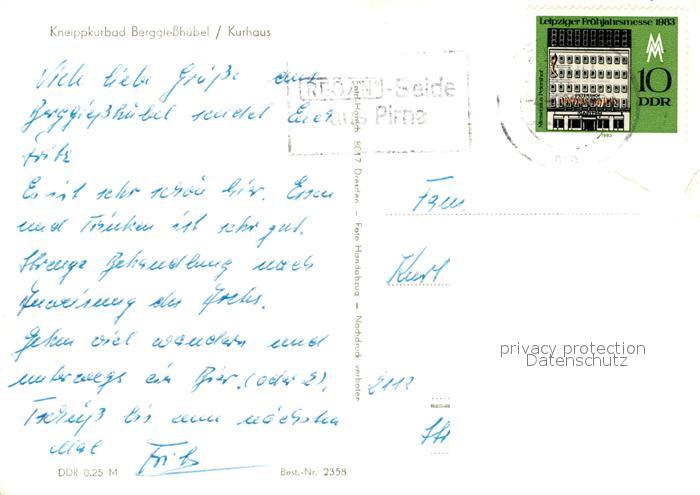 Kneippkurbad Berggießhübel / Kurhaus
Leipziger Frühjahrsmesse 1983
Messehaus Petershof
10
DDR
1983
REGAN-Seide
aus Pirna
Viele liebe Grüße aus
Berggießhübel sendet Euch
Fritz
Es ist sehr schön hier. Essen
und Trinken ist sehr gut.
Strenge Behandlung nach
Anweisung des Arztes.
Gehen viel wandern und
unterwegs ein Bier. (oder 2),
Tschüß bis zum nächsten
Mal Fritz
Fam.
Kurt
privacy protection
Datenschutz
8017 Dresden – Foto Handabzug – Nachdruck verboten
DDR 0,25 M
Best.-Nr. 2358